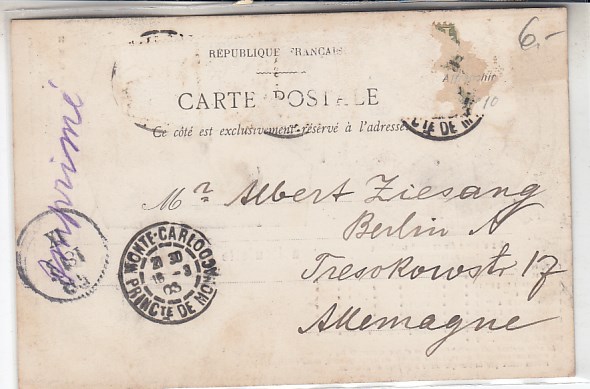 6.-
RÉPUBLIQUE FRANÇAIS
CARTE POSTALE
Ce côté est exclusivement réservé à l'adresse
10
CTÉ DE M
Imprimé
Mr Albert Ziesang
Berlin A
Tresokowstr 17
Allemagne
MONTE-CARLO
PRINCTÉ DE MONACO